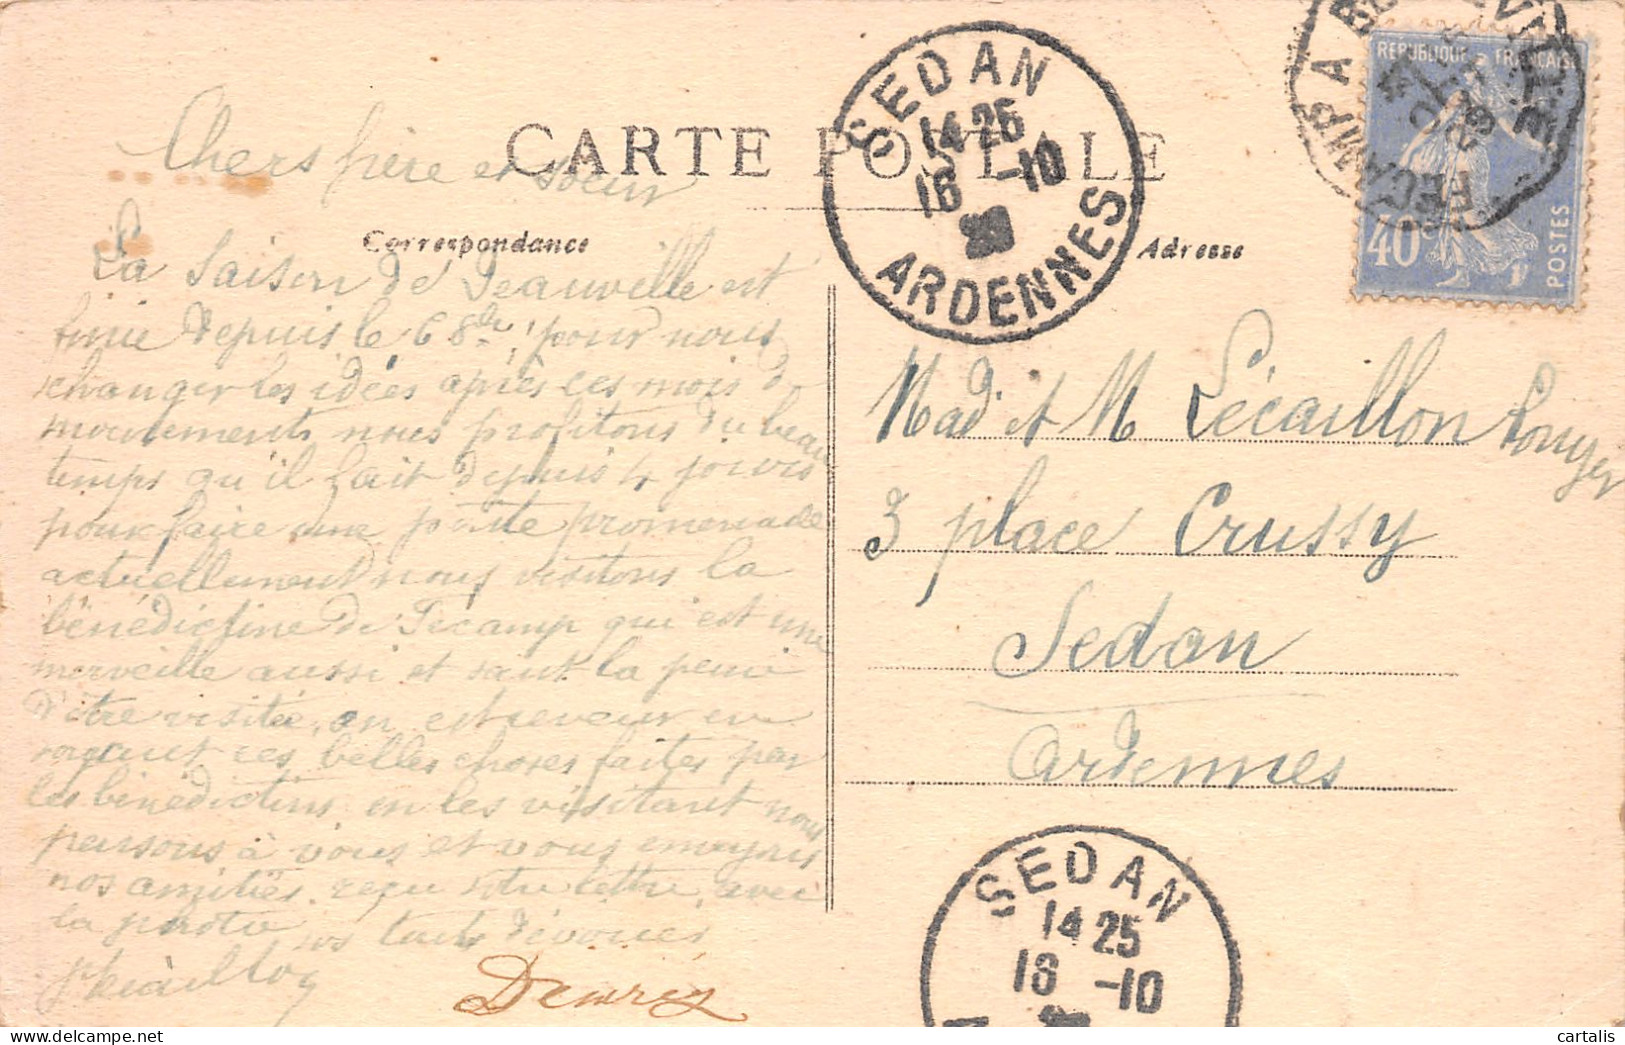 CARTE POSTALE
Correspondance
Adresse
SEDAN
14 25
16 -10
ARDENNES
FECAMP A BEUZEVILLE
REPUBLIQUE FRANÇAISE
40c
POSTES
Chers frère et soeur
La Saison de Deauville est
finie depuis le 6 8bre, pour nous
changer les idées après ces mois de
mouvements nous profitons du beau
temps qu'il fait depuis 4 jours
pour faire une petite promenade
actuellement nous visitons la
bénédictine de Fécamp qui est une
merveille aussi et vaut la peine
d'être visitée, on est rêveur en
voyant ces belles choses faites par
les bénédictins en les visitant nous
pensons à vous et vous envoyons
nos amitiés. reçu votre lettre, avec
la photo
vos tout dévoués
Mad et M Lécaillon
3 place Crussy
Sedan
Ardennes
SEDAN
14 25
16 -10
cartalis